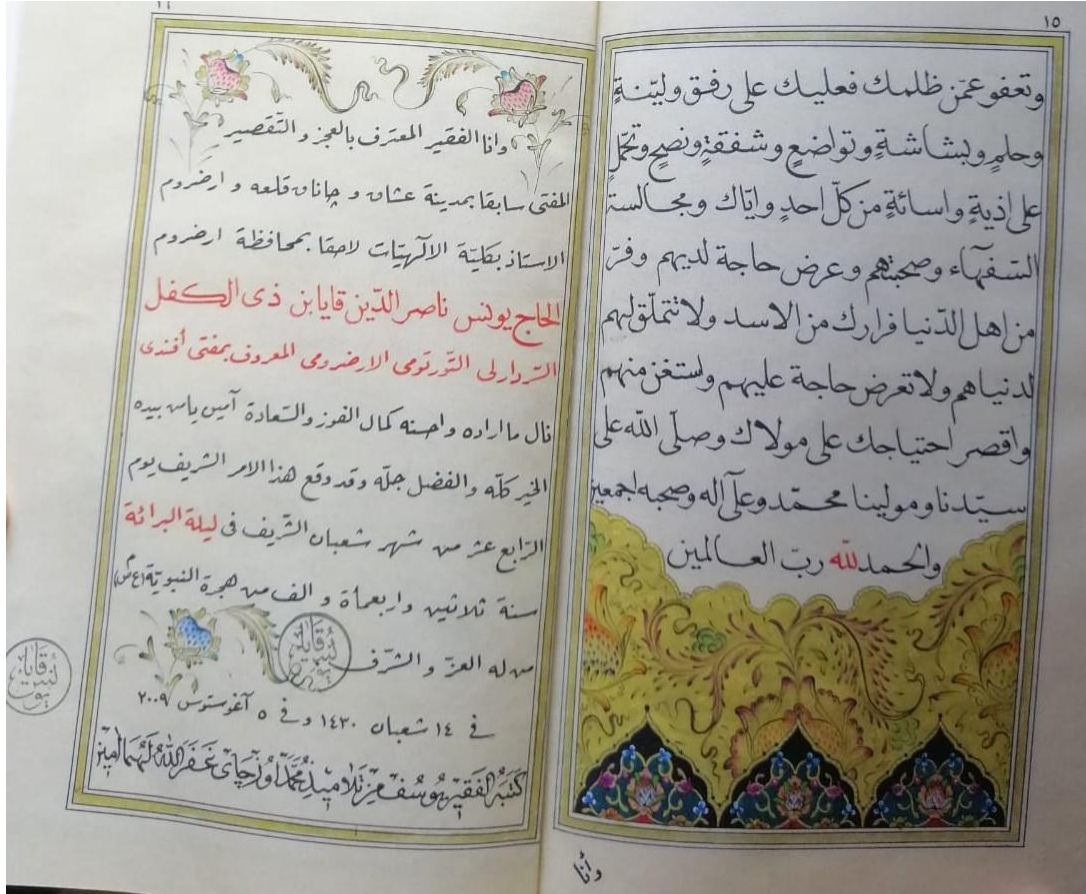 ١٥
وتعفو عمّن ظلمك فعليك على رفق ولينةٍ
وحلمٍ وبشاشةٍ وتواضعٍ وشفقةٍ ونصحٍ وتحمّلٍ
على اذيةٍ واسائةٍ من كلّ احدٍ وايّاك ومجالسة
السّفهآء وصحبتهم وعرض حاجة لديهم وفرّ
من اهل الدّنيا فرارك من الاسد ولا تتملّق لهم
لدنياهم ولا تعرض حاجة عليهم واستغن منهم
واقصر احتياجك على مولاك وصلّى الله على
سيّدنا ومولينا محمّد وعلى آله وصحبه اجمعين
والحمد لله ربّ العالمين
وأنا
١٦
وانا الفقير المعترف بالعجز و التّقصير
المفتى سابقا بمدينة عشاق و چاناق قلعه و ارضروم
الاستاذ بكليّة الالٓهيّات لاحقا بمحافظة ارضروم
الحاج يونس ناصر الدّين قايا بن ذى الكفل
السّردارلى التّورتومى الارضرومى المعروف بمفتى أفندى
نال ما اراده واحسنه كمال الفوز والسّعادة آمين يا من بيده
الخير كلّه والفضل جلّه وقد وقع هذا الامر الشريف يوم
الرّابع عشر من شهر شعبان الشّريف فى ليلة البرائة
سنة ثلاثين واربعمأة و الف من هجرة النبويّة
من له العزّ و الشّرف
فى ١٤ شعبان ١٤٣٠ و فى ٥ آغوستوس ٢٠٠٩
كَتَبَهُ الفَقِير يُوسُف مِنْ تَلَامِيذِ مُحَمَّد اُوزْچَاى غَفَرَ اللّٰهُ لَهُمَا آمِين